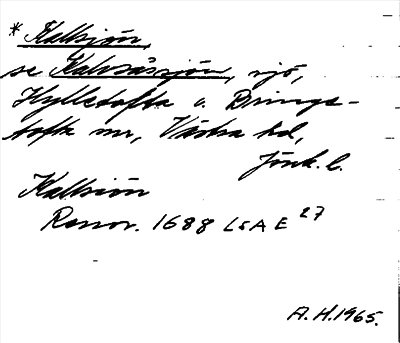 * Kalksjön,
se Kalvsåssjön, sjö,
Hylletofta o. Brings-
tofta snr, Västra hd,
Jönk. l.
Kalksiön
Renov. 1688 LSA E 27
A.H. 1965.